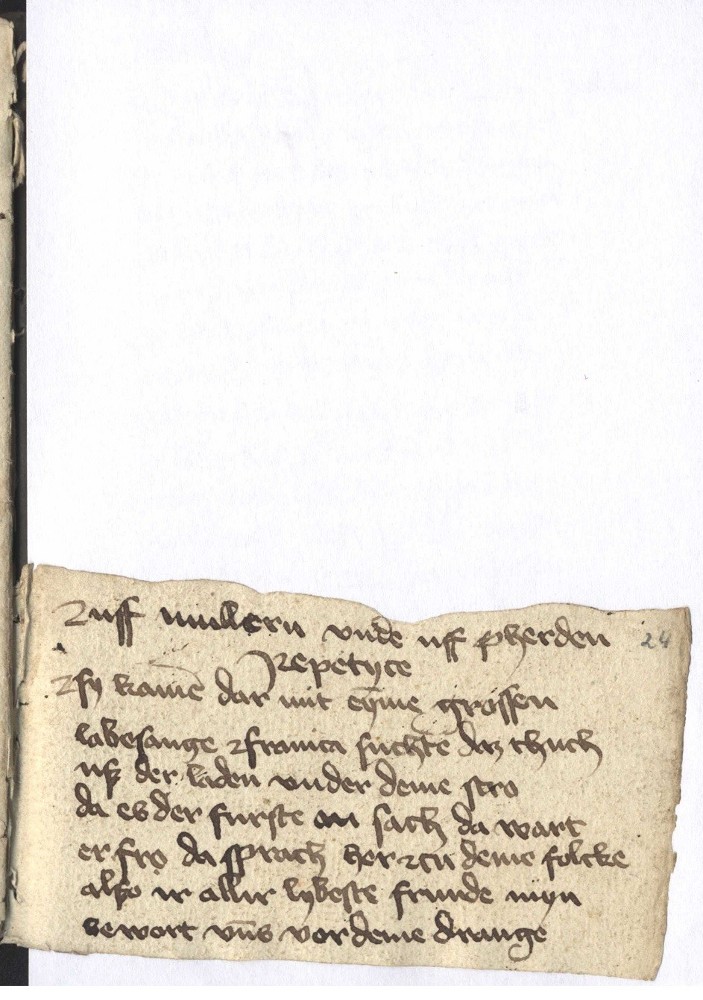 uff mullern vnde uff pherden 24
Repetyce
sy kamē dar mit eyme grossen
labesange franica suchte daz thuch
uß der laden vnder deme stro
da es der furste an sach da wart
er fro da sprach her zcu deme folcke
alßo ir allir lybeste frunde myn
bewort vns vor deme drange